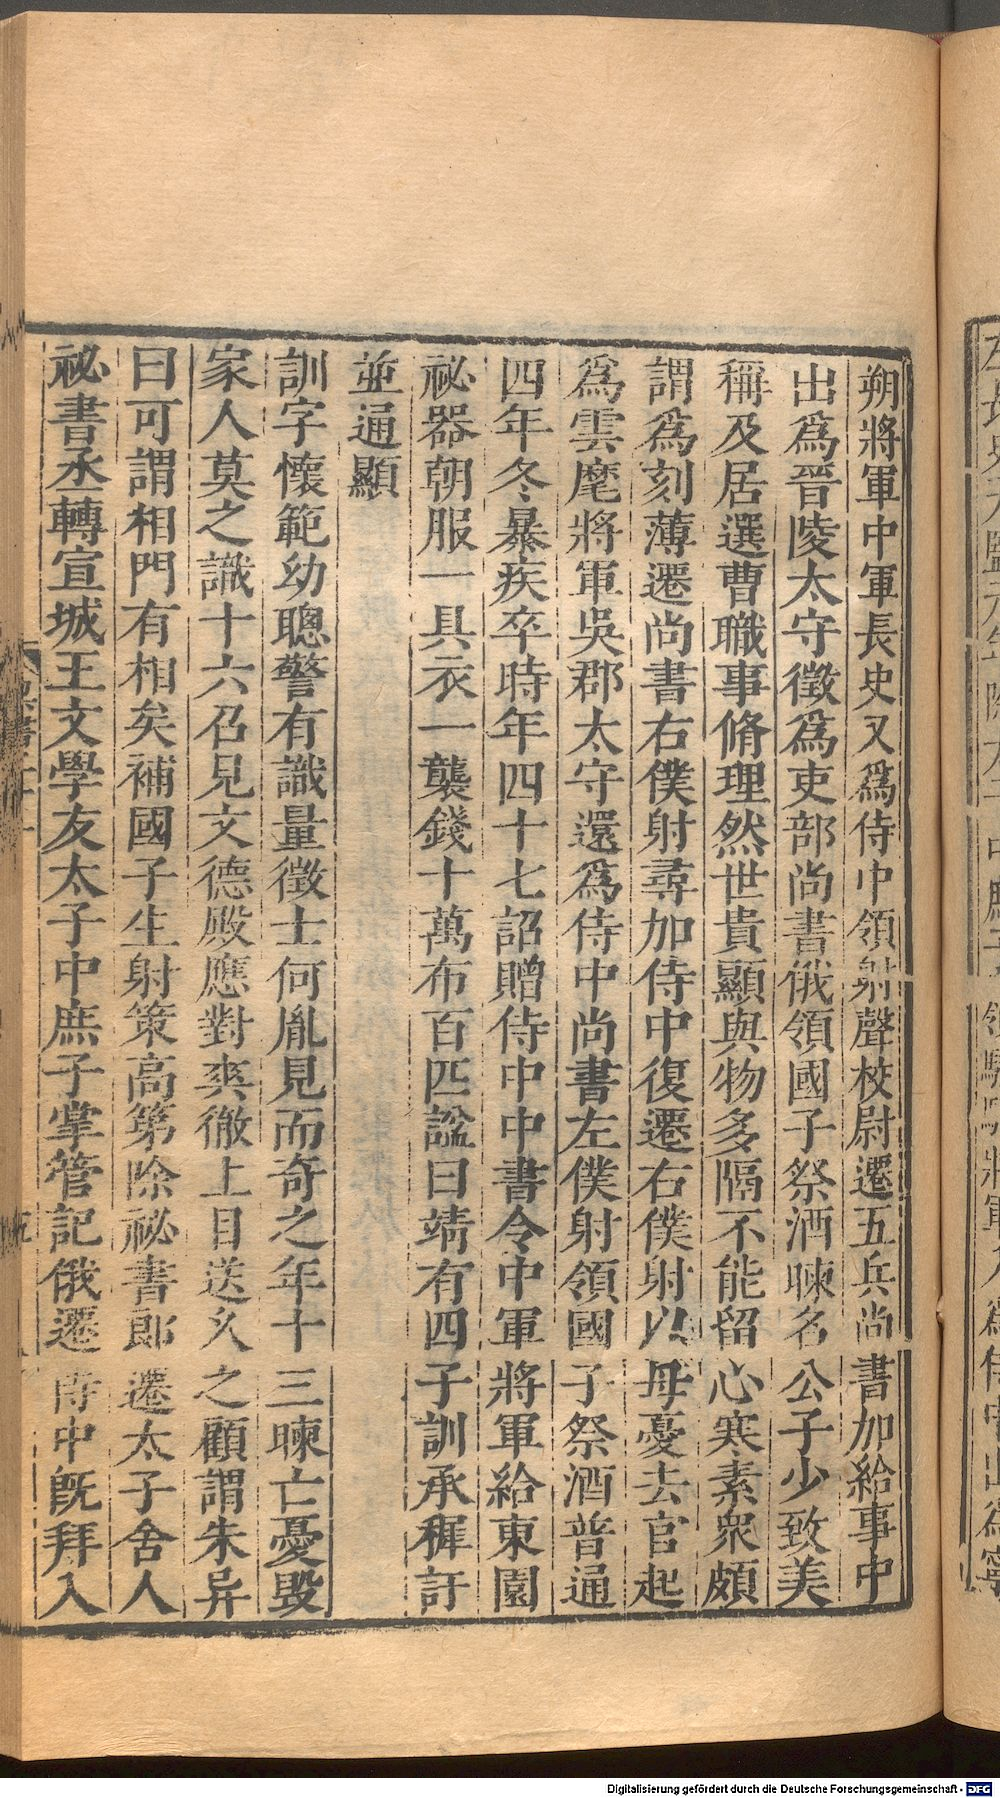 朔將軍中軍長史又爲侍中領射聲校尉遷五兵尚書加給事中
出爲晉陵太守徵爲吏部尚書俄領國子祭酒暕名公子少致美
稱及居選曹職事脩理然世貴顯與物多隔不能留心寒素衆頗
謂爲刻薄遷尚書右僕射尋加侍中復遷右僕射以母憂去官起
爲雲麾將軍吳郡太守還爲侍中尚書左僕射領國子祭酒普通
四年冬暴疾卒時年四十七詔贈侍中中書令中軍將軍給東園
祕器朝服一具衣一襲錢十萬布百匹諡曰靖有四子訓承穉訏
並通顯
訓字懷範幼聰警有識量徵士何胤見而奇之年十三暕亡憂毀
家人莫之識十六召見文德殿應對爽徹上目送久之顧謂朱异
曰可謂相門有相矣補國子生射策高第除祕書郎遷太子舍人
祕書丞轉宣城王文學友太子中庶子掌管記俄遷侍中旣拜入
Digitalisierung gefördert durch die Deutsche Forschungsgemeinschaft - DFG